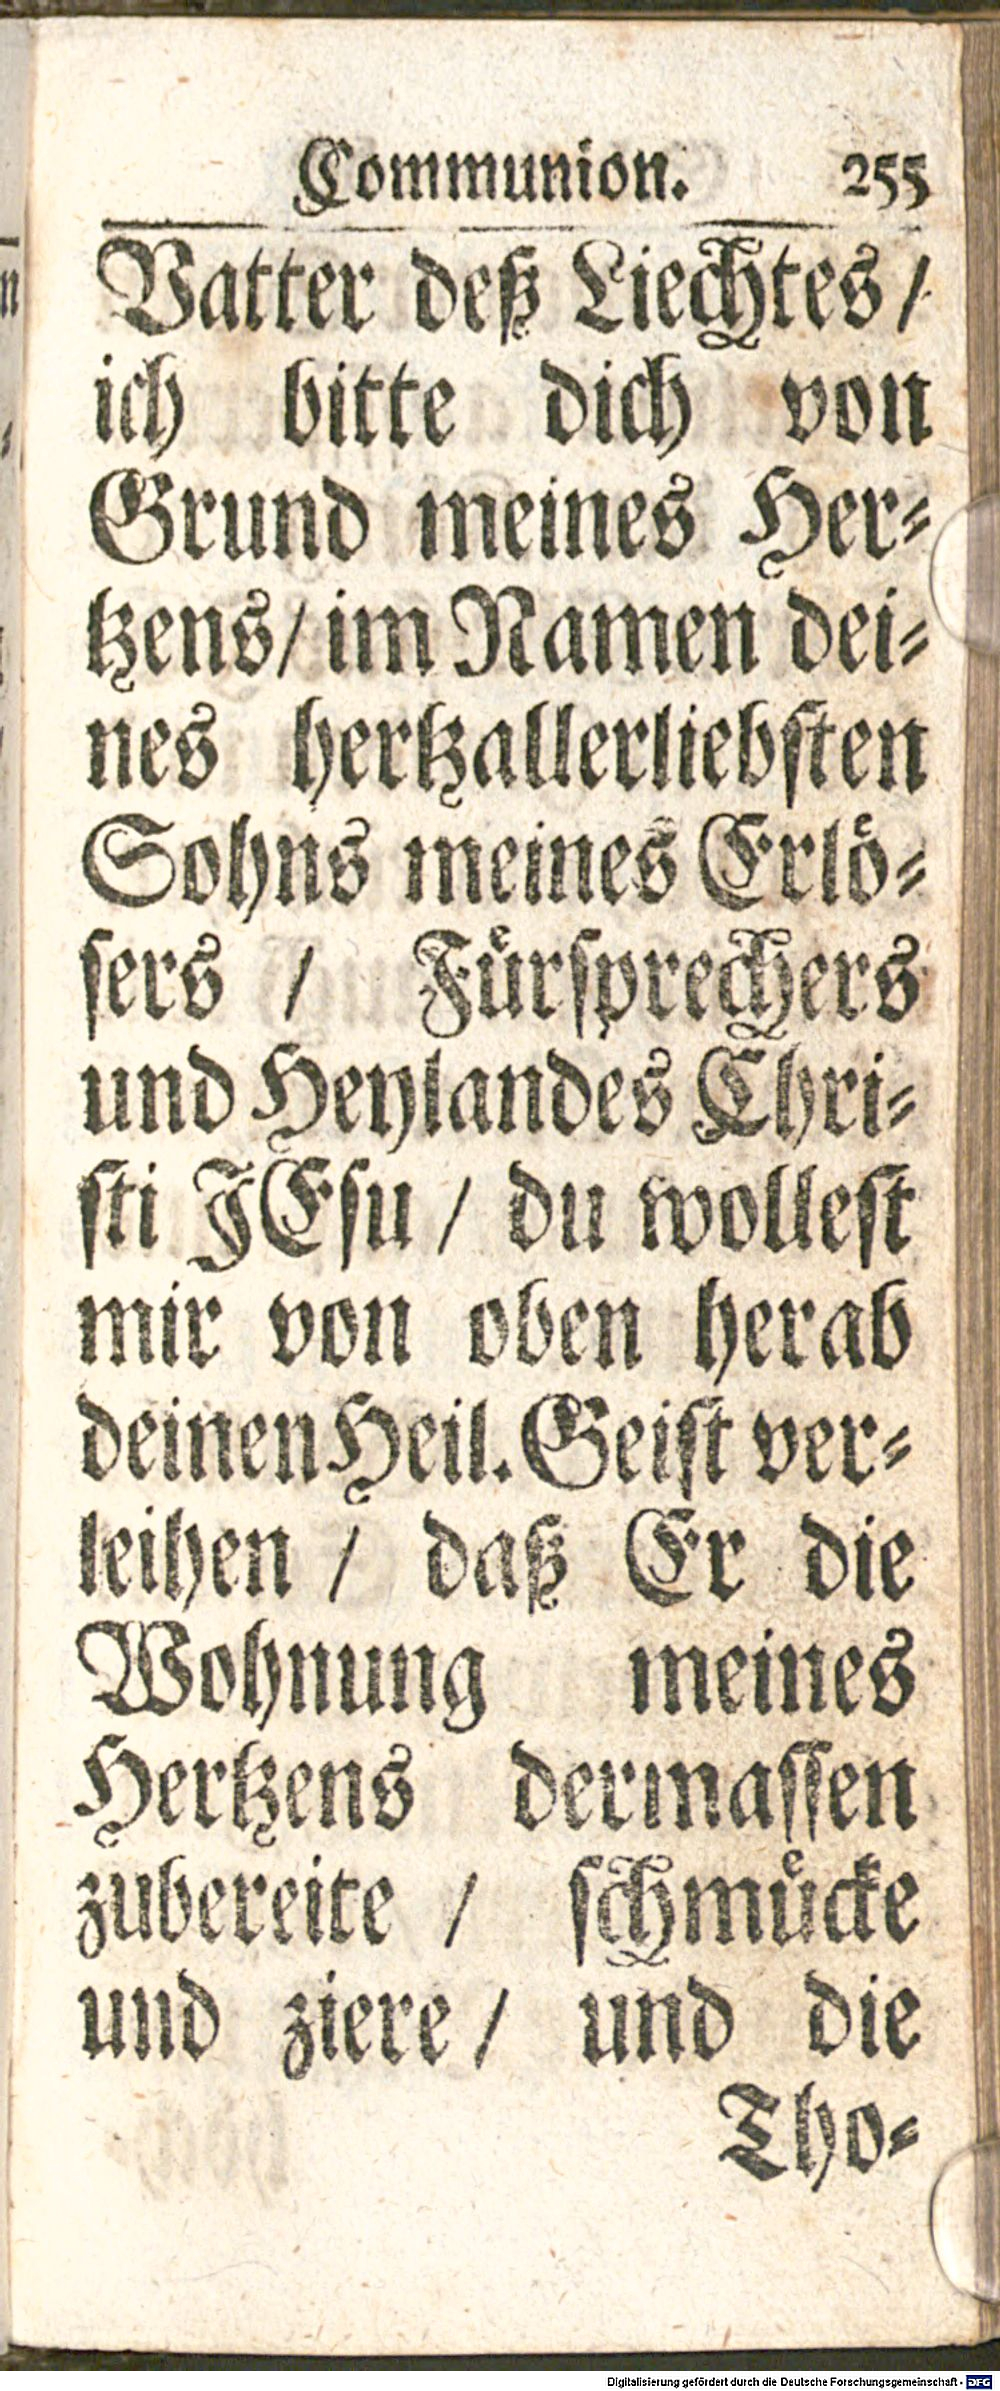 Communion. 255
Vatter deß Liechtes /
ich bitte dich von
Grund meines Her⸗
tzens / im Namen dei⸗
nes hertzallerliebſten
Sohns meines Erloͤ⸗
ſers / Fuͤrſprechers
und Heylandes Chri⸗
ſti JEſu / du wolleſt
mir von oben herab
deinen Heil. Geiſt ver⸗
leihen / daß Er die
Wohnung meines
Hertzens dermaſſen
zubereite / ſchmuͤcke
und ziere / und die
Tho⸗
Digitalisierung gefördert durch die Deutsche Forschungsgemeinschaft - DFG